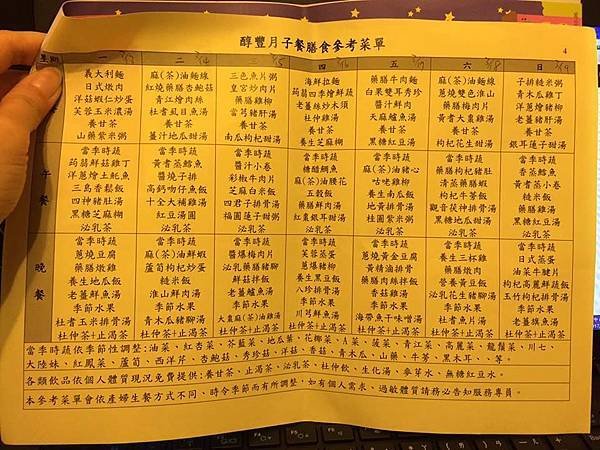 醇豐月子餐膳食參考菜單
4
星期 一 二 三 四 五 六 日
義大利麵
日式燉肉
洋菇蝦仁炒蛋
芙蓉玉米濃湯
養甘茶
山藥紫米粥
麻(茶)油麵線
紅燒藥膳杏鮑菇
青江燴肉絲
杜耆虱目魚湯
養甘茶
薑汁地瓜甜湯
三色魚片粥
皇宮炒肉片
藥膳雞柳
當芎豬肝湯
養甘茶
南瓜枸杞甜湯
海鮮拉麵
蒟蒻四季燴鮮蔬
老薑絲炒木須
杜仲雞湯
養甘茶
養生芝麻糊
藥膳牛肉麵
白果雙耳秀珍
醬汁鮮肉
天麻鱸魚湯
養甘茶
黑糖紅豆湯
麻(茶)油麵線
蔥燒雙色淮山
藥膳梅肉片
黃耆大棗雞湯
養甘茶
枸杞花生甜湯
子排糙米粥
青木瓜雞丁
洋蔥燴豬柳
老薑雞湯
養甘茶
銀耳蓮子甜湯
午餐
當季時蔬
蒟蒻鮮菇雞丁
洋蔥燴土魠魚
三島香鬆飯
四神豬肚湯
黑糖芝麻糊
泌乳茶
當季時蔬
黃耆蒸鱈魚
醬燒子排
高鈣吻仔魚飯
十全大補雞湯
紅豆湯圓
泌乳茶
當季時蔬
醬汁小卷
彩椒牛肉片
芝麻白米飯
四君子排骨湯
福圓蓮子甜粥
泌乳茶
當季時蔬
糖醋鯛魚
麻(茶)油腰花
五穀飯
藥膳鮮肉湯
紅棗銀耳甜湯
泌乳茶
當季時蔬
麻(茶)油豬心
咕咾雞柳
養生南瓜飯
地黃排骨湯
桂圓紫米粥
泌乳茶
當季時蔬
藥膳枸杞豬肚
清蒸藥膳蝦
枸杞牛蒡飯
觀音茯神排骨湯
黑糖地瓜甜湯
泌乳茶
當季時蔬
香蒸鱈魚
黃耆蒸小卷
糙米飯
茯神排骨湯
黑糖紅豆湯
泌乳茶
晚餐
當季時蔬
蔥燒文蛤
藥膳燉雞
養生地瓜飯
老薑鮮魚湯
季節水果
杜耆玉米排骨湯
杜仲茶+止渴茶
當季時蔬
麻(茶)油鮮蝦
蘆筍枸杞炒蛋
糙米飯
淮山鮮肉湯
季節水果
青木瓜豬腳湯
杜仲茶+止渴茶
當季時蔬
醬爆梅肉片
泌乳藥膳豬腳
鮮菇拌飯
老薑鱸魚湯
季節水果
大棗麻(茶)油雞湯
杜仲茶+止渴茶
當季時蔬
芙蓉蒸蛋
蔥爆豬柳
養生黑豆飯
八珍排骨湯
季節水果
川芎鮮魚湯
杜仲茶+止渴茶
當季時蔬
蔥燒黃金豆腐
黃精滷排骨
藥膳肉絲拌飯
香菇雞湯
季節水果
海帶魚干味噌湯
杜仲茶+止渴茶
當季時蔬
養生三杯雞
藥膳燉肉
營養黃豆飯
泌乳花生豬腳湯
季節水果
杜耆魚片湯
杜仲茶+止渴茶
當季時蔬
日式蒸蛋
油菜牛腱片
枸杞高麗鮮蔬飯
玉竹枸杞排骨湯
季節水果
老薑旗魚湯
杜仲茶+止渴茶
當季時蔬依季節性調整:油菜、紅杏菜、芥藍菜、地瓜葉、花椰菜、A菜、菠菜、青江菜、高麗菜、龍鬚菜、川七、
大陸妹、紅鳳菜、蘆筍、西洋芹、杏鮑菇、秀珍菇、洋菇、香菇、青木瓜、山藥、牛蒡、黑木耳、、等。
各類飲品依個人體質現況免費提供:養甘茶、止渴茶、泌乳茶、杜仲飲、生化湯、麥芽水、無糖紅豆水。
本參考菜單會依產婦生餐方式不同、時令季節而有所調整,如有個人需求、過敏體質請務必告知服務專員。